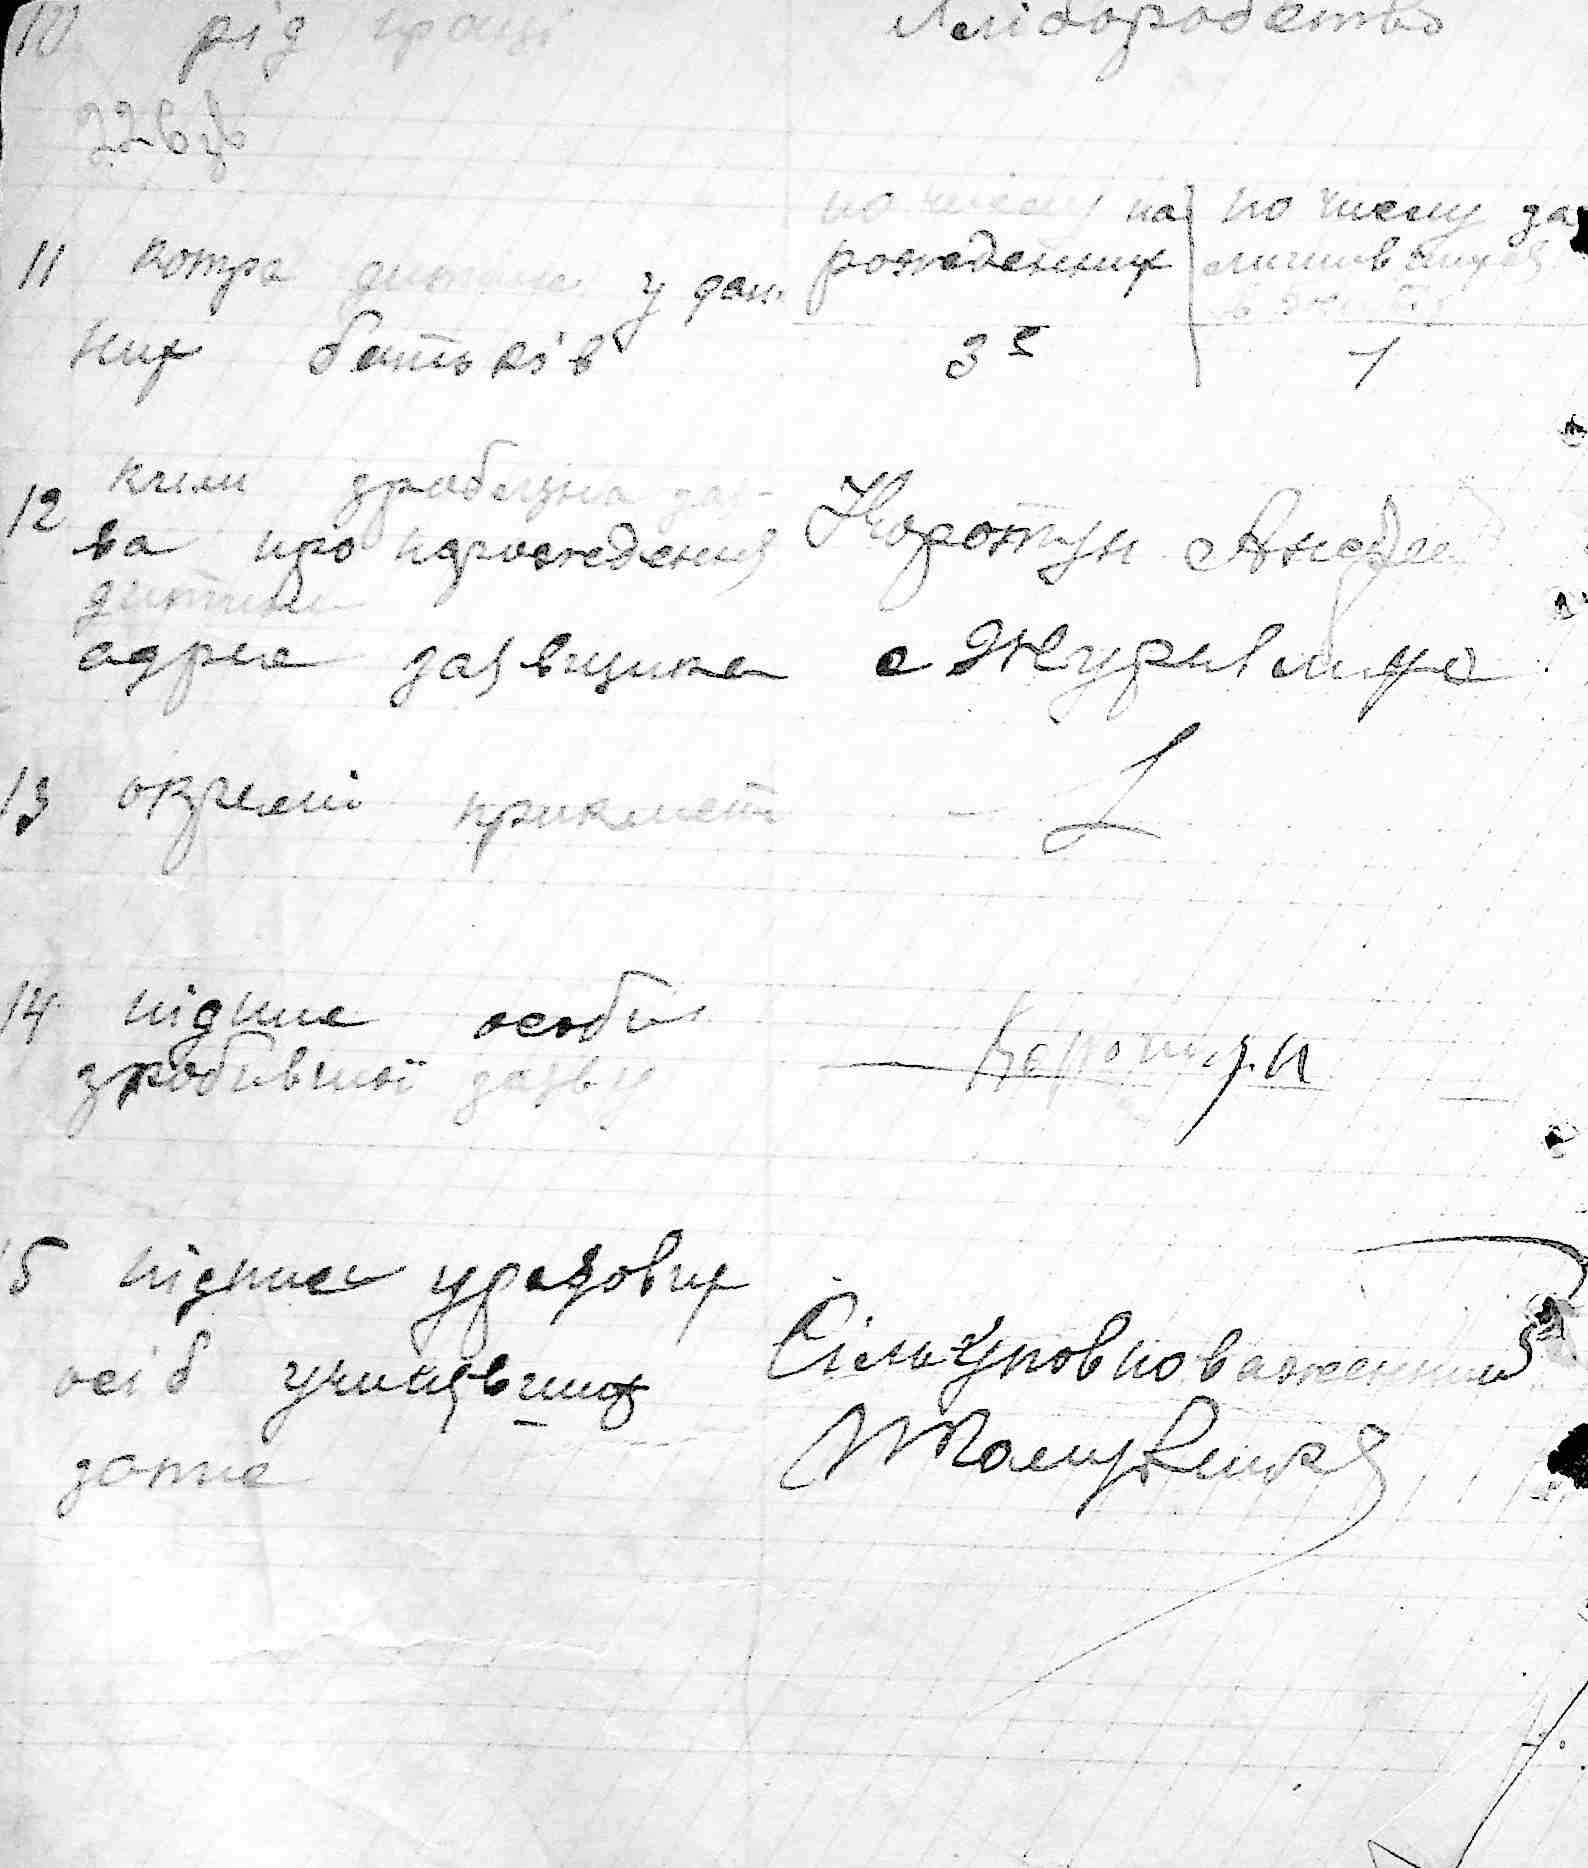 10 рід праці хліборобство
11 котра дитина у дан
них батьків
по числу на
рожденних
по числу за
лишившихся
3 1
12 ким зроблена зая-
ва про народження Коротун Андрей
дитини
адрес заявщика с Журивлиха
13 окремі прикмети
14 підпис особи
зробившої заяву Коротун
15 підписи урядових
осіб учинявших Сільуповноваженний
запис